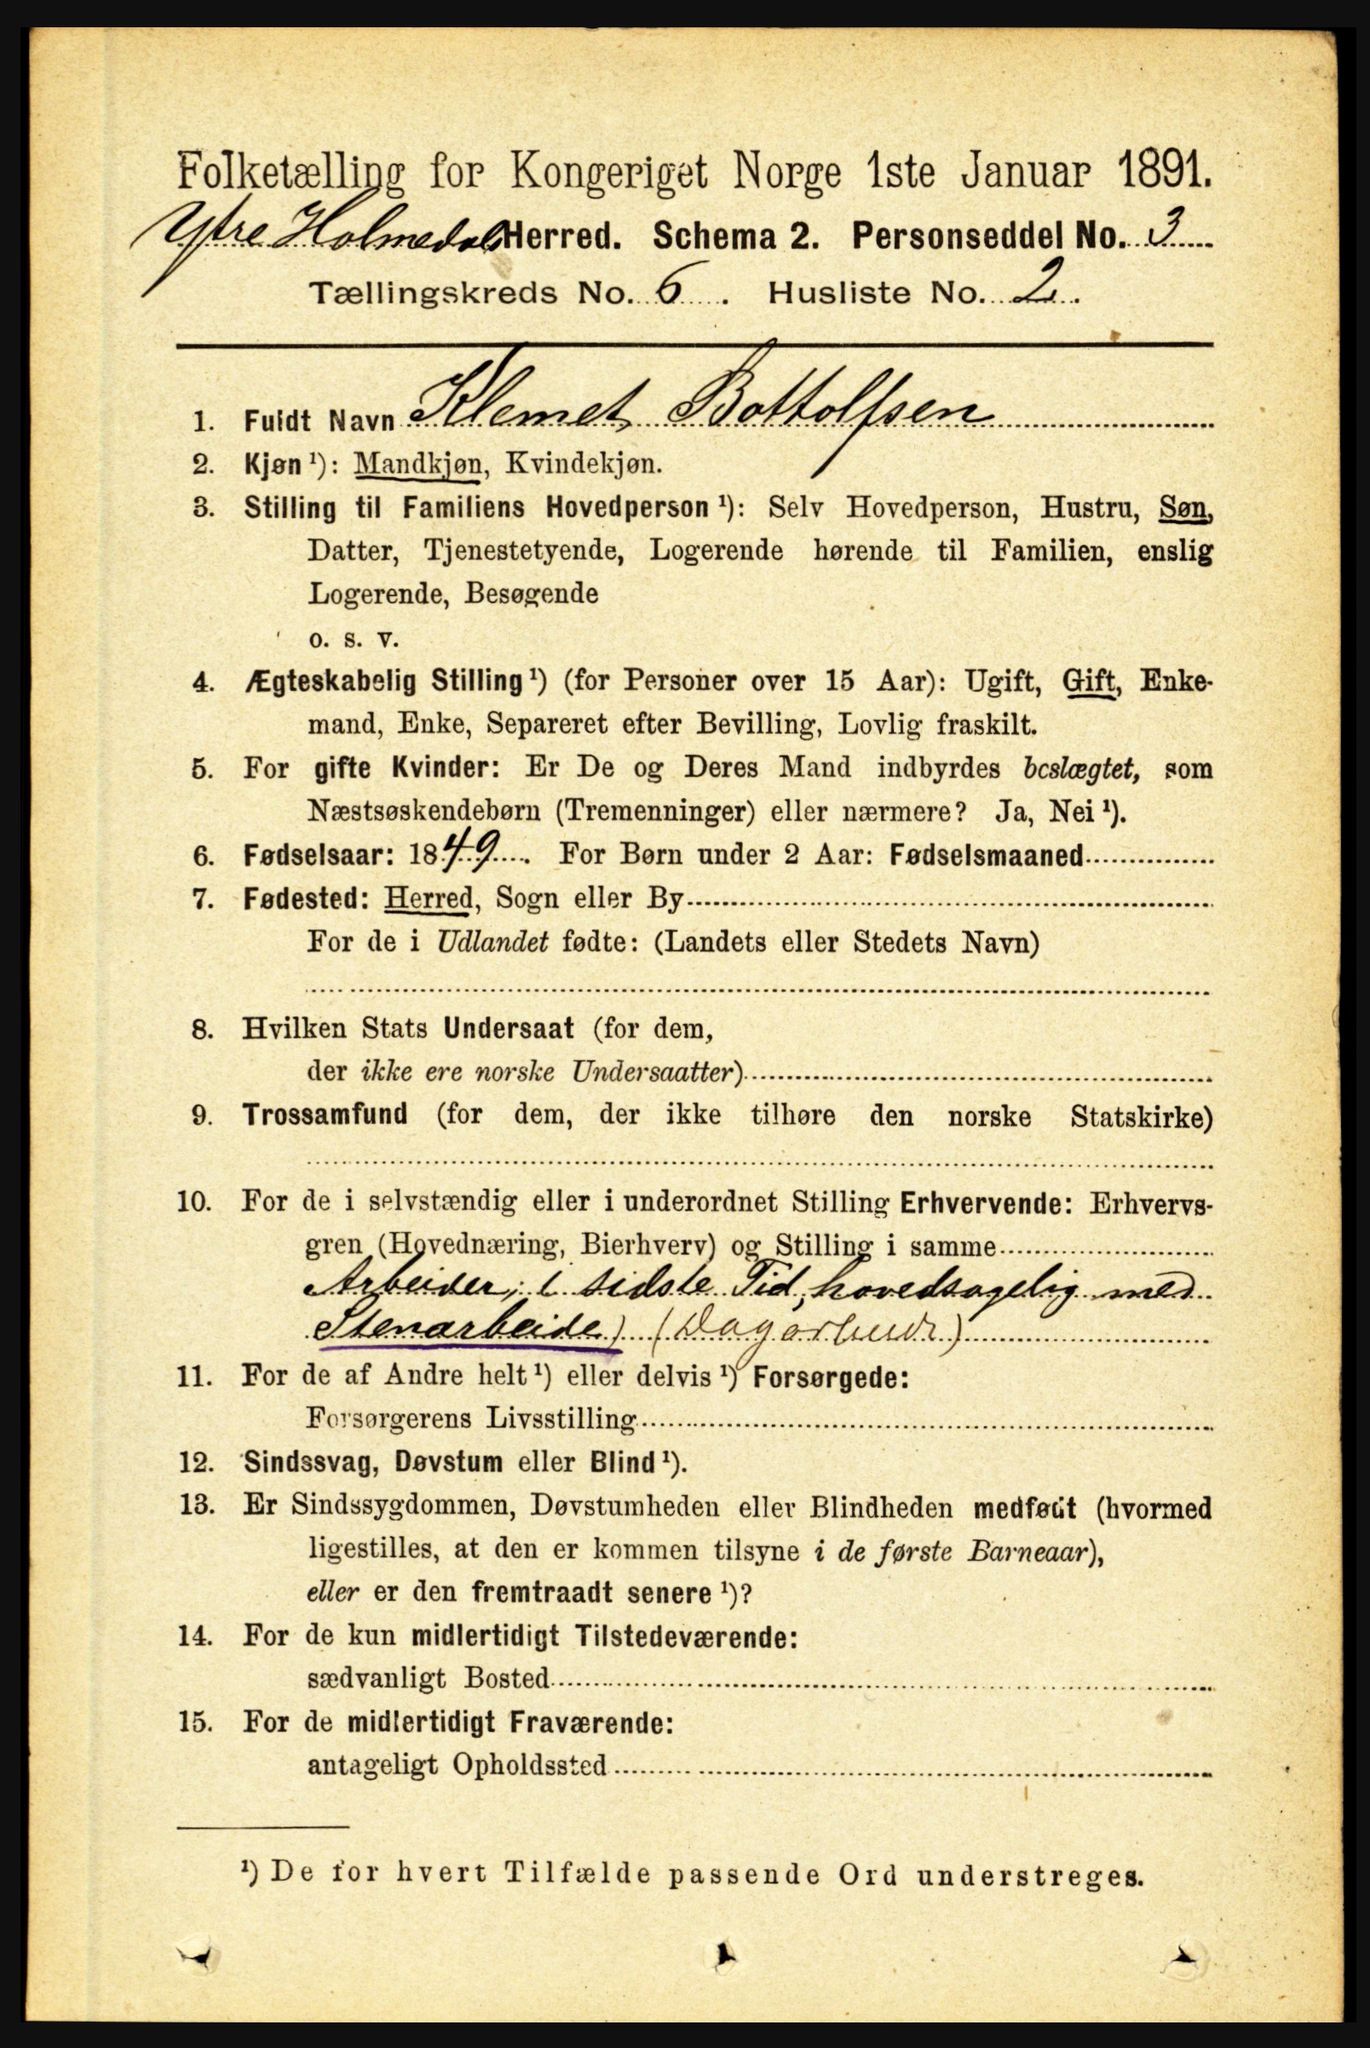 Folketælling for Kongeriget Norge 1ste Januar 1891.
Ytre Holmedal Herred. Schema 2. Personseddel No. 3
Tællingskreds No. 6. Husliste No. 2.
1. Fuldt Navn Klemet Bottolfsen
2. Kjøn¹): Mandkjøn, Kvindekjøn.
3. Stilling til Familiens Hovedperson¹): Selv Hovedperson, Hustru, Søn,
Datter, Tjenestetyende, Logerende hørende til Familien, enslig
Logerende, Besøgende
o. s. v.
4. Ægteskabelig Stilling¹) (for Personer over 15 Aar): Ugift, Gift, Enke-
mand, Enke, Separeret efter Bevilling, Lovlig fraskilt.
5. For gifte Kvinder: Er De og Deres Mand indbyrdes beslægtet, som
Næstsøskendebørn (Tremenninger) eller nærmere? Ja, Nei¹).
6. Fødselsaar: 1849. For Børn under 2 Aar: Fødselsmaaned
7. Fødested: Herred, Sogn eller By
For de i Udlandet fødte: (Landets eller Stedets Navn)
8. Hvilken Stats Undersaat (for dem,
der ikke ere norske Undersaatter)
9. Trossamfund (for dem, der ikke tilhøre den norske Statskirke)
10. For de i selvstændig eller i underordnet Stilling Erhvervende: Erhvervs-
gren (Hovednæring, Bierhverv) og Stilling i samme
Arbeider, i sidste Tid, hovedsagelig med
Stenarbeide) (Dagarbeide)
11. For de af Andre helt¹) eller delvis¹) Forsørgede:
Forsørgerens Livsstilling
12. Sindssvag, Døvstum eller Blind¹).
13. Er Sindssygdommen, Døvstumheden eller Blindheden medfødt (hvormed
ligestilles, at den er kommen tilsyne i de første Barneaar),
eller er den fremtraadt senere¹)?
14. For de kun midlertidigt Tilstedeværende:
sædvanligt Bosted
15. For de midlertidigt Fraværende:
antageligt Opholdssted
¹) De for hvert Tilfælde passende Ord understreges.